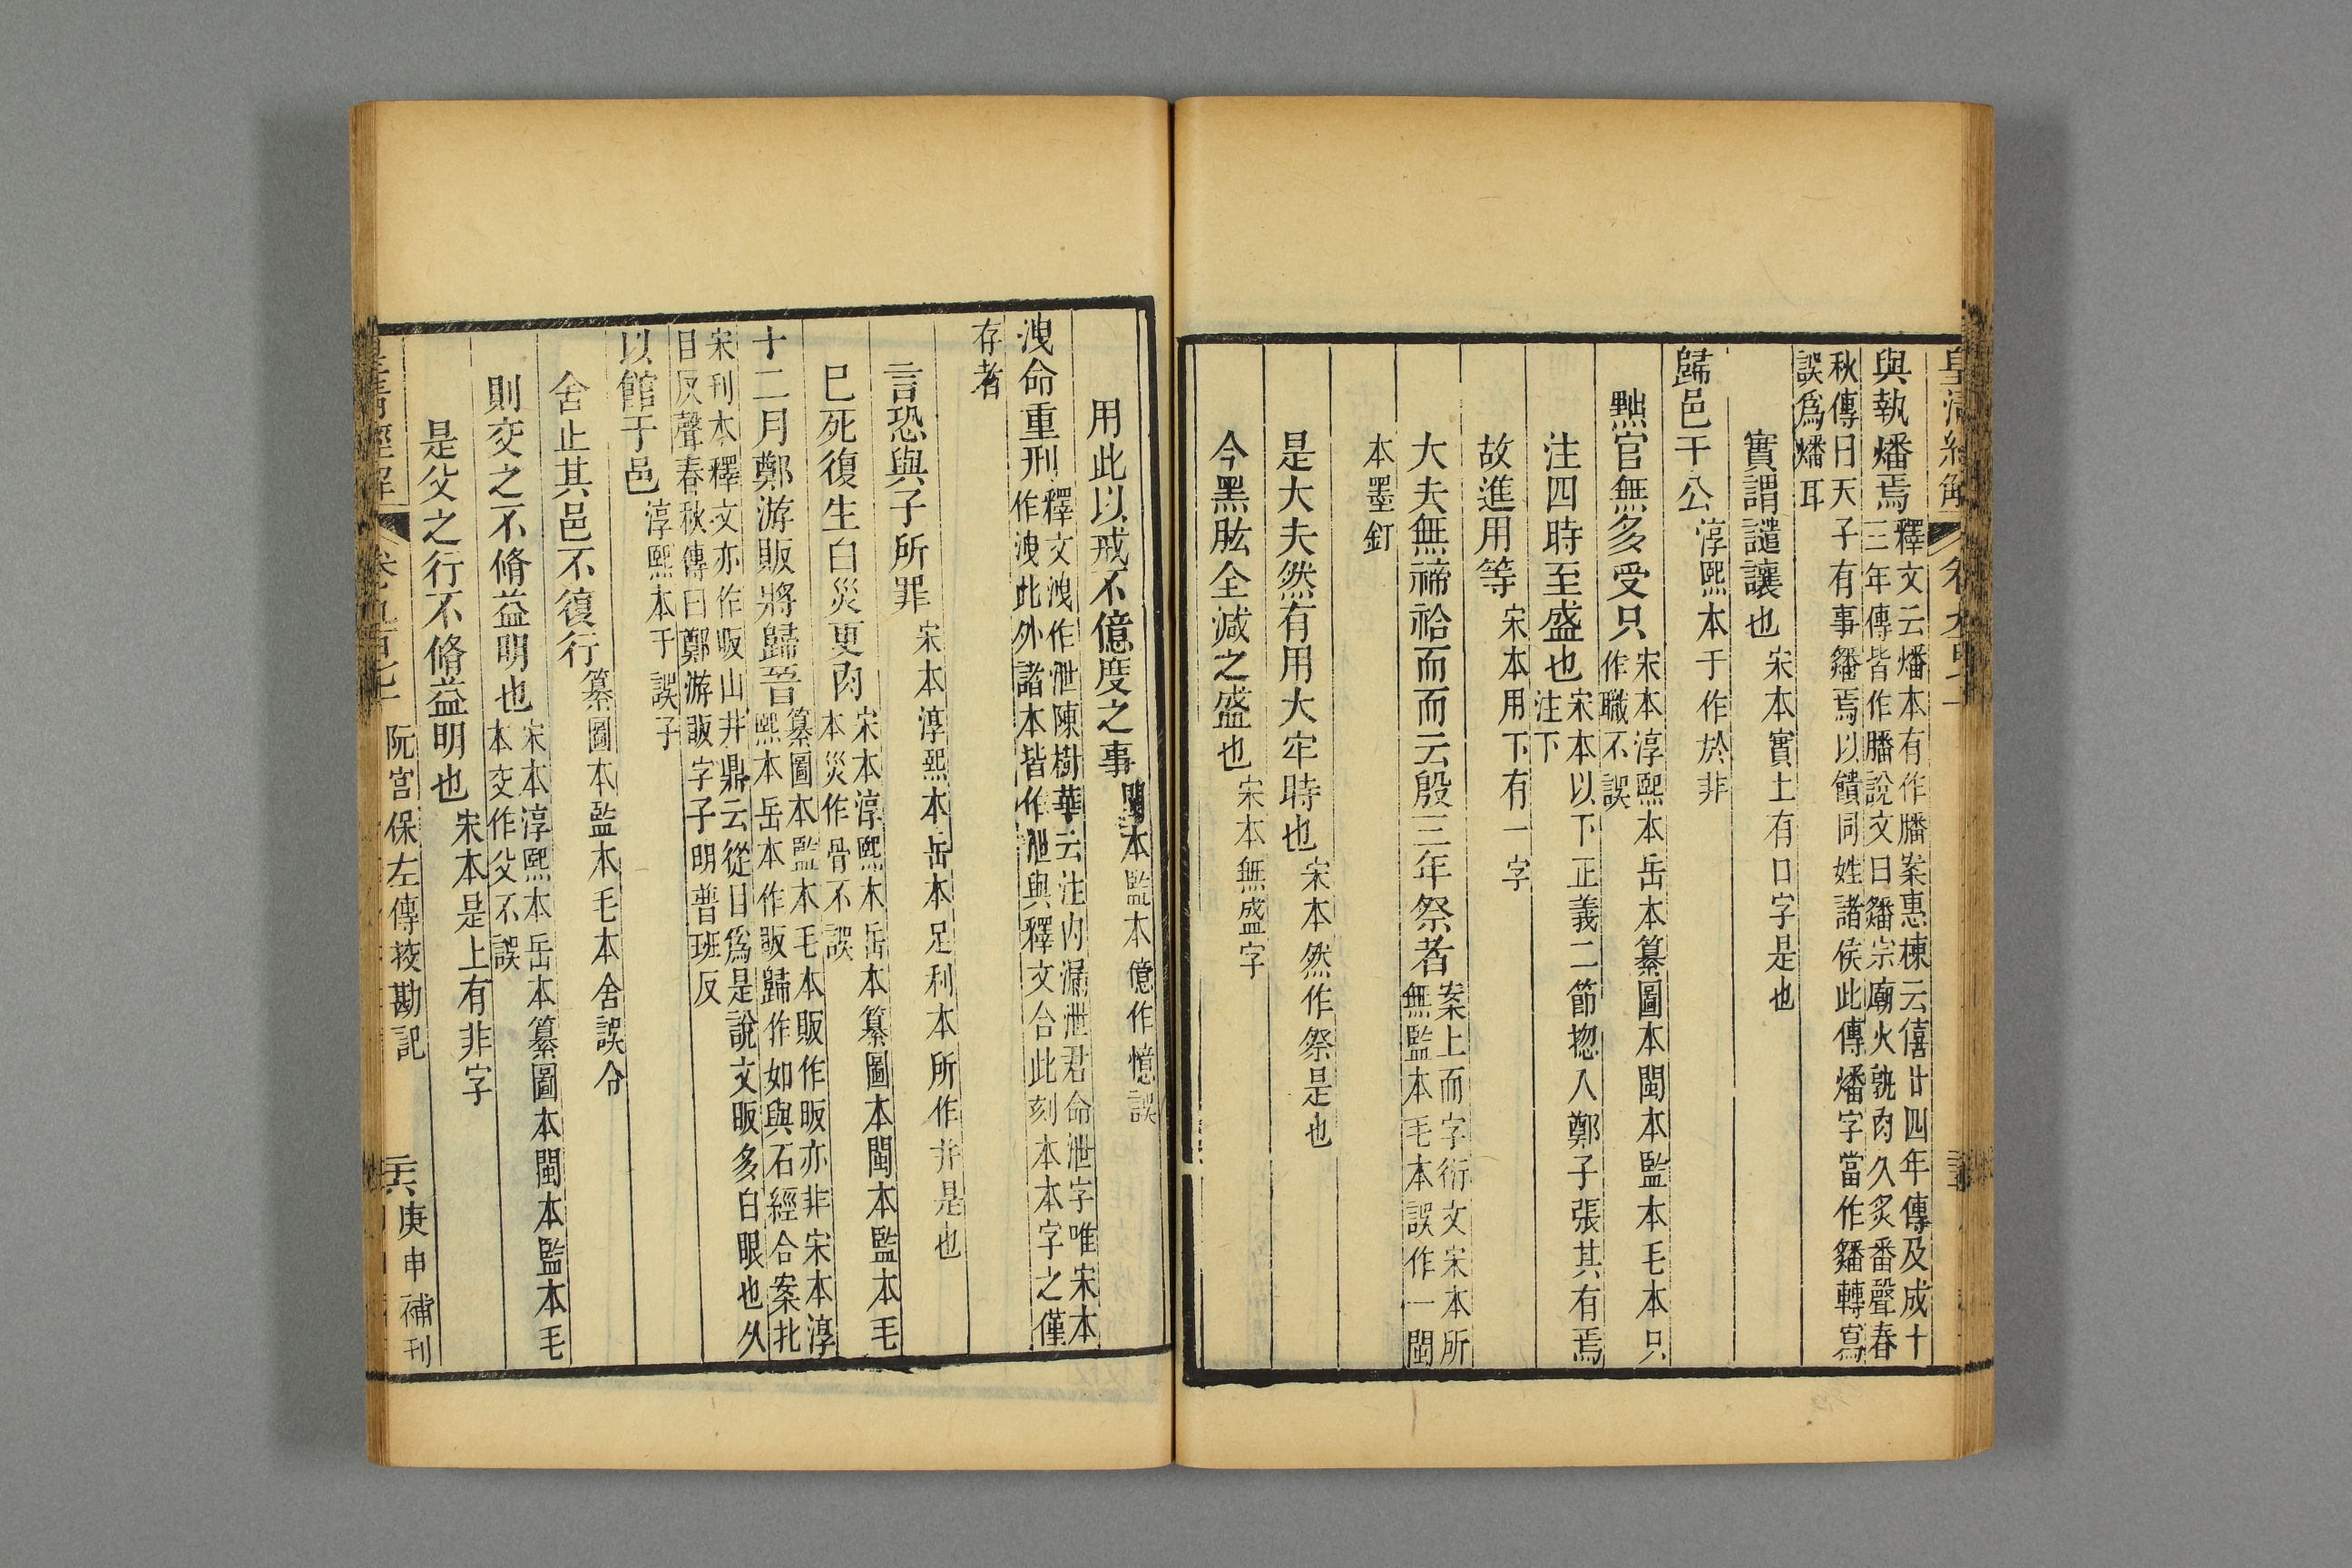 與執燔焉釋文云燔本有作膰案惠棟云僖廿四年傳及成十
三年傳皆作膰說文曰䉒宗廟火孰肉久炙番聲春
秋傳曰天子有事䉒焉以饋同姓諸侯此傳燔字當作䉒轉寫
誤爲燔耳
實謂譴讓也宋本實上有口字是也
歸邑于公淳熙本于作於非
黜官無多受只宋本淳熙本岳本纂圖本閩本監本毛本只
作職不誤
注四時至盛也宋本以下正義二節揔入鄭子張其有焉
注下
故進用等宋本用下有一字
大夫無禘祫而而云殷三年祭者案上而字衍文宋本所
無監本毛本誤作一閩
本墨釘
是大夫然有用大牢時也宋本然作祭是也
今黑肱全減之盛也宋本無盛字
用此以戒不億度之事閩本監本億作憶誤
洩命重刑釋文洩作泄陳樹華云注内漏泄君命泄字唯宋本
作洩此外諸本皆作泄與釋文合此刻本本字之僅
存者
言恐與子所罪宋本淳熙本岳本足利本所作并是也
巳死復生白災更肉宋本淳熙本岳本纂圖本閩本監本毛
本災作骨不誤
十二月鄭游販將歸晉纂圖本監本毛本販作昄亦非宋本淳
熙本岳本作眅歸作如與石經合案北
宋刊本釋文亦作昄山井鼎云從日爲是說文眅多白眼也从
目反聲春秋傳曰鄭游眅字子明普班反
以館于邑淳熙本于誤子
舍止其邑不復行纂圖本監本毛本舍誤分
則交之不脩益明也宋本淳熙本岳本纂圖本閩本監本毛
本交作父不誤
是父之行不脩益明也宋本是上有非字
阮宮保左傳挍勘記
庚申補刊